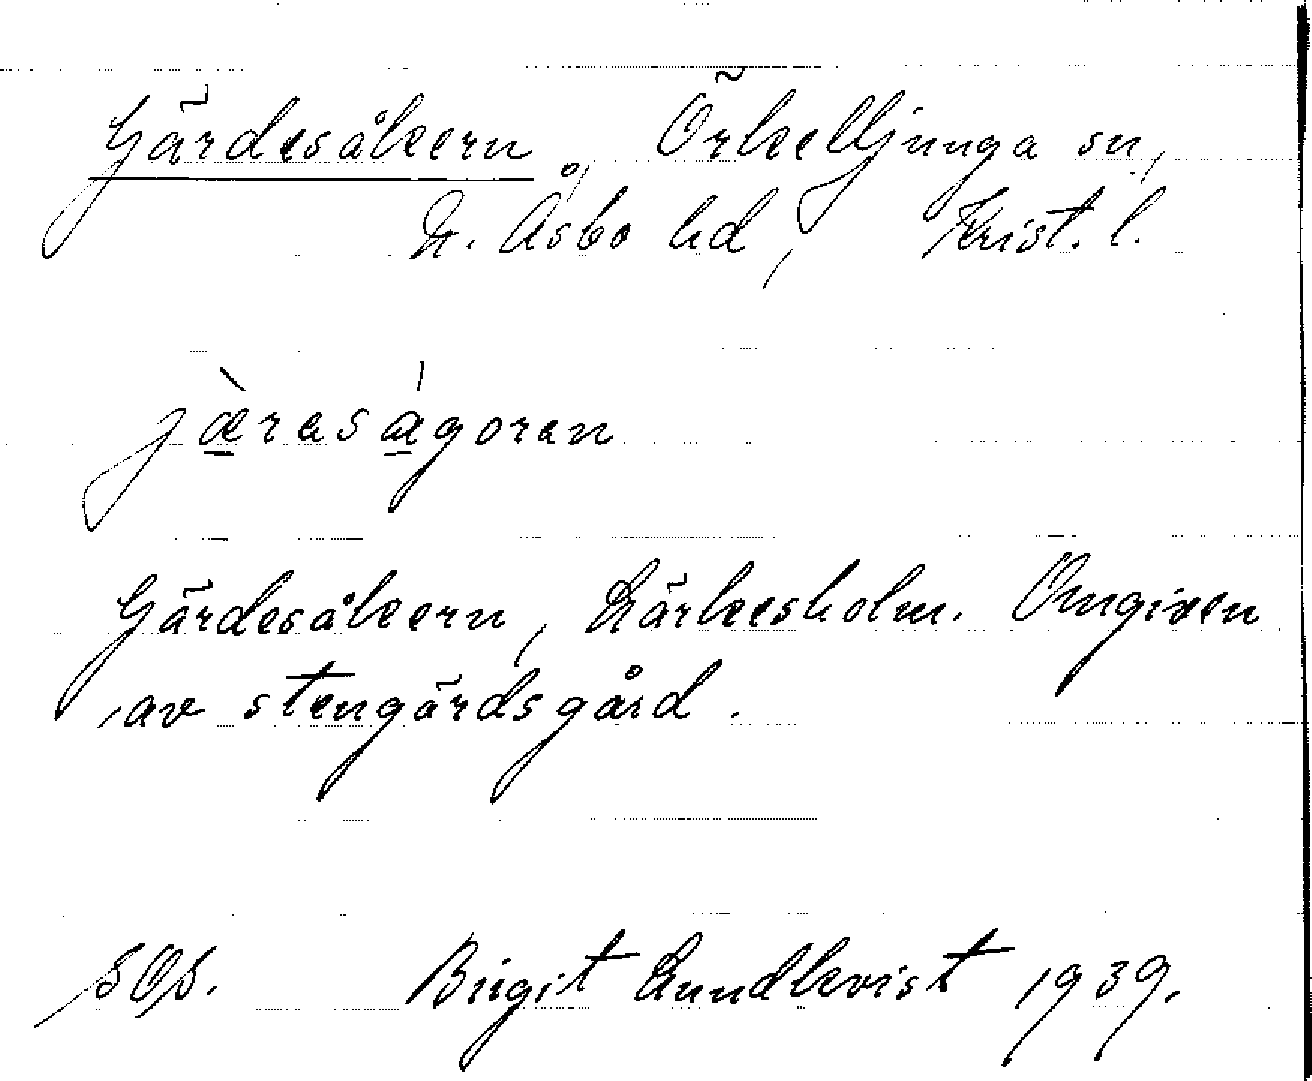 Gärdesåkern, Örkelljunga sn,
N. Åsbo hd, Krist. l.
jæ̠̀rasá̠goran
Gärdesåkern, Lärkesholm. Omgiven
av stengärdsgård.
SOS. Birgit Lundkvist 1939.